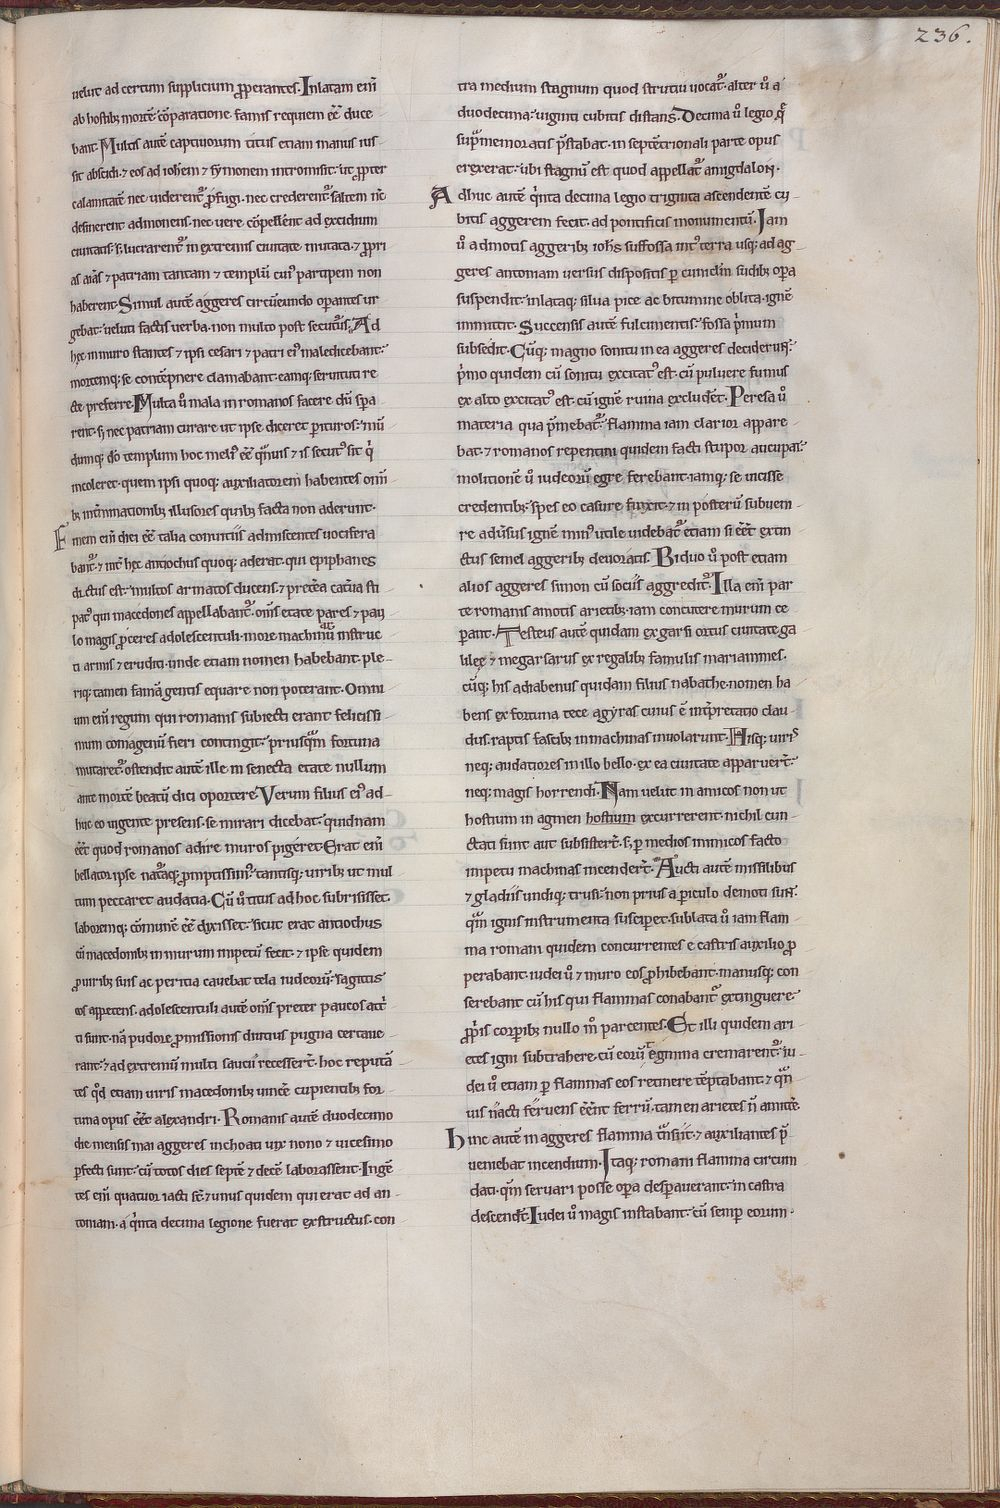 236.
uelut ad certum supplicium ꝓperantes. Inlatam eni̅
ab hostib; morte̅ co̅paratione famis requiem ee̅ duce
bant. Multis aute̅ captiuorum titus etiam manus ius
sit abscidi. ⁊ eos ad ioh̅em ⁊ symonem intromisit. ut ꝓpter
calamitate̅ nec uiderent᷑ ꝓfugi. nec crederent᷑. saltem n̅c
desinerent admonens. nec uere co̅pellent ad excidium
ciuitatis. s; lucrarent᷑ in extremis ciuitate mutata. ⁊ ꝓpri
as ai̅as ⁊ patriam tantam ⁊ templu̅ cui᷒ participem non
haberent. Simul aute̅ aggeres circu̅eundo oꝑantes ur
gebat. ueluti factis uerba non multo post secutur᷒. Ad
hęc in muro stantes ⁊ ipsi cesari ⁊ patri ei᷒ maledicebant.
mortemq; se conte̅pnere clamabant. eamq; seruituti re
cte preferre. Multa u̅ mala in romanos facere du̅ spa
rent. s; nec patriam curare ut ipse diceret ꝑituros. mu̅
dumq; do̅ templum hoc meli᷒ ee̅ qua̅uis ⁊ is secut᷒ sit qi̅
incoleret. quem ipsi quoq; auxiliatorem habentes om̅i
b; int̅minationib; illusores quib; facta non aderunt.
Finem eni̅ dici ee̅ talia conuitiis admiscentes uocifera
bant᷑. ⁊ int̅ hęc antiochus quoq; aderat. qui epiphanes
dictus est. multos armatos ducens. ⁊ pretea̅ catu̅a sti
pat᷒ qui macedones appellabant᷑. om̅s etate pares ⁊ pau
lo magis ꝓceres adolescentuli. more machinu̅ instruc
ti armis ⁊ eruditi. unde etiam nomen habebant. ple
riq; tamen fama̅ gentis equare non poterant. Omni
um eni̅ regum qui romanis subiecti erant felicissi
mum comagenu̅ fieri contingit. priusqua̅m fortuna
mutaret᷑. ostendit aute̅ ille in senecta etate nullum
ante morte̅ beatu̅ dici oportere. Verum filius ei᷒ ad
huc eo uigente presens. se mirari dicebat. quidnam
ee̅t quod romanos adire muros pigeret. Erat eni̅
bellator ipse nat̅aq; promptissim᷒. tantisq; uirib; ut mul
tum peccaret audatia. Cu̅ u̅ titus ad hoc subrisisset.
laboremq; co̅mune̅ ee̅ dixisset. sicut erat antiochus
cu̅ macedonib; in murum impetu̅ fecit. ⁊ ipse quidem
ꝓ uirib; suis ac peritia cauebat tela iudeoru̅. sagittis
eos appetens. adolescentuli aute̅ om̅s preter paucos att̅
ti sunt. na̅ pudore ꝓmissionis diutius pugna certaue
rant. ⁊ ad extremu̅ multi saucii recesserr̅t. hoc reputa̅
tes qd̅ etiam uiris macedonib; uince̅ cupientib; for
tuna opus ee̅t alexandri. Romanis aute̅ duodecimo
die mensis mai aggeres inchoati uix nono ⁊ uicesimo
ꝑfecti sunt. cu̅ totos dies septe̅ ⁊ dece̅ laborassent. Inge̅
tes eni̅ quatuor iacti st̅. ⁊ unus quidem qui erat ad an
toniam. a qi̅nta decima legione fuerat exstructus. con
tra medium stagnum quod strutiu uocat᷑. alter u̅ a
duodecima. uiginti cubitis distans. Decima u̅ legio q̅
sup̅memoratis p̅stabat. in septe̅trionali parte opus
exerxerat. ubi stagnu̅ est quod appellat᷑ amigdalon.
Adhuc aute̅ qi̅nta decima legio triginta ascendente cu
bitis aggerem fecit. ad pontificis monumentu̅. Jam
u̅ admotis aggerib; ioh̅s suffossa int᷒ terra usq; ad ag
geres antoniam uersus dispositis ꝑ cuniclm̅ sudib; oꝑa
suspendit. inlataq; silua pice ac bitumine oblita. igne̅
inmittit. Succensis aute̅ fulcimentis. fossa pi̅mum
subsedit. Cu̅q; magno sonitu in ea aggeres deciderunt̅.
pi̅mo quidem cu̅ sonitu excitat᷒ est. cu̅ puluere fumus
ex alto excitat᷒ est. cu̅ igne̅ ruina excluder̅t. Peresa u̅
materia qua p̅mebat᷑. flamma iam clarior appare
bat. ⁊ romanos repentini quidem facti stupor aucupat᷑.
molitione̅ u̅ iudeoru̅ egre ferebant. iamq; se uicisse
credentib;. spes eo casure friixit. ⁊ in posteru̅ subueni
re adu̅sus igne̅ min᷒ utile uidebat᷑. etiam si ee̅t extin
ctus semel aggerib; deuoratis. Biduo u̅ post etiam
alios aggeres simon cu̅ sociis aggredit᷑. Illa eni̅ par
te romanis amotis arietib; iam concutere murum ce
ꝑant. Testeus aute̅ quidam ex garsi ortus ciuitate ga
lilęę ⁊ megarsarus ex regalib; famulis mariammes.
cu̅q; his adiabenus quidam filius nabathe. nomen ha
bens ex fortuna tece agyras cuius e̅ int̅pretatio clau
dus. raptis fascib; in machinas inuolarunt. Hisq; uiris
neq; audatiores in illo bello ex ea ciuitate apparuert̅.
neq; magis horrendi. Nam uelut in amicos non ut
hostium in agmen hostium excurrerent. nichil cun
ctati sunt aut subsistert̅. s; ꝑ medios inimicos facto
impetu machinas incendert̅. Aucti aute̅ missilibus
⁊ gladiis undiq; trusi. non prius a ꝑiculo demoti sun̅t
qua̅ ignis instrumenta susciper̅t. sublata u̅ iam flam
ma romani quidem concurrentes e castris auxilio ꝓ
perabant. iudei u̅ ⁊ muro eos ꝓhibebant. manusq; con
serebant cu̅ his qui flammas conabant᷑ extinguere.
ꝓpi̅is corꝑib; nullo m̅ parcentes. Et illi quidem ari
etes igni subtrahere. cu̅ eoru̅ tegmina cremarent᷑. iu
dei u̅ etiam ꝑ flammas eos retinere te̅ptabant. ⁊ qua̅
uis n̅acti feruens ee̅nt ferru̅. tamen arietes n̅ amitte̅.
Hinc aute̅ in aggeres flamma t̅nsiit. ⁊ auxiliantes p̅
ueniebat incendium. Jtaq; romani flamma circum
dati. qm̅ seruari posse oꝑa desꝑauerant. in castra
descender̅t. Iudei u̅ magis instabant. cu̅ semꝑ eorum